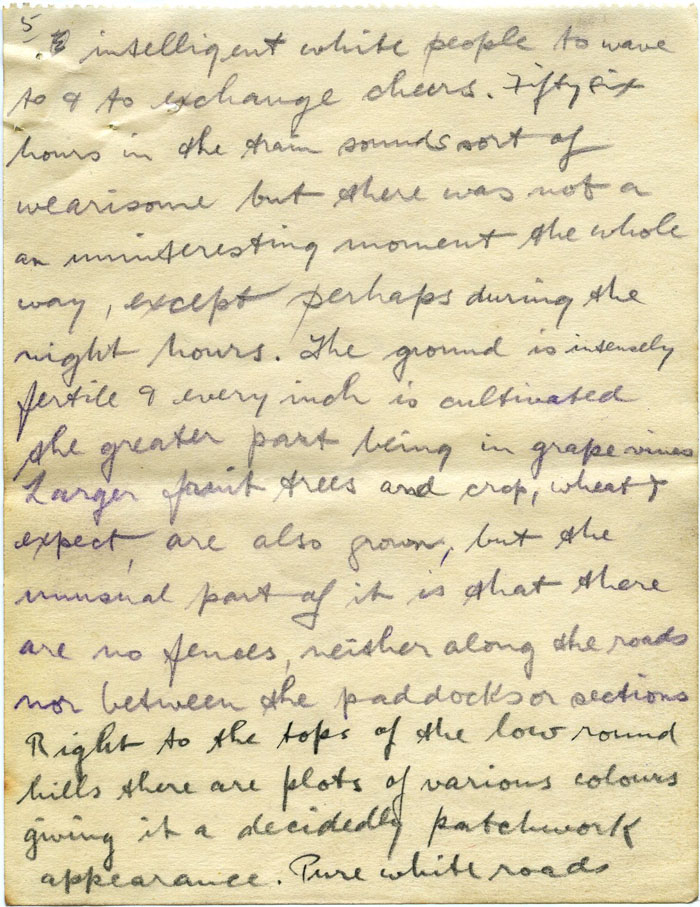 5
& intelligent white people to wave
to & to exchange cheers. Fifty six
hours in the train sounds sort of
wearisome but there was not a
an uninteresting moment the whole
way, except perhaps during the
night hours. The ground is intensely
fertile & every inch is cultivated
the greater part being in grape vines
Larger fruit trees and crop, wheat I
expect, are also grown, but the
unusual part of it is that there
are no fences, neither along the roads
nor between the paddocks or sections
Right to the tops of the low round
hills there are plots of various colours
giving it a decidedly patchwork
appearance. Pure white roads